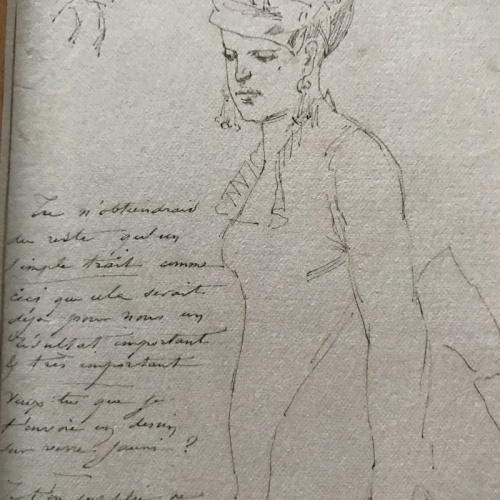 Tu n'obtiendrais
du reste qu'un
simple trait comme
ceci que cela serait
déjà pour nous un
résultat important
& très important
Veux tu que je
t'envoie un dessin
sur verre jauni ?